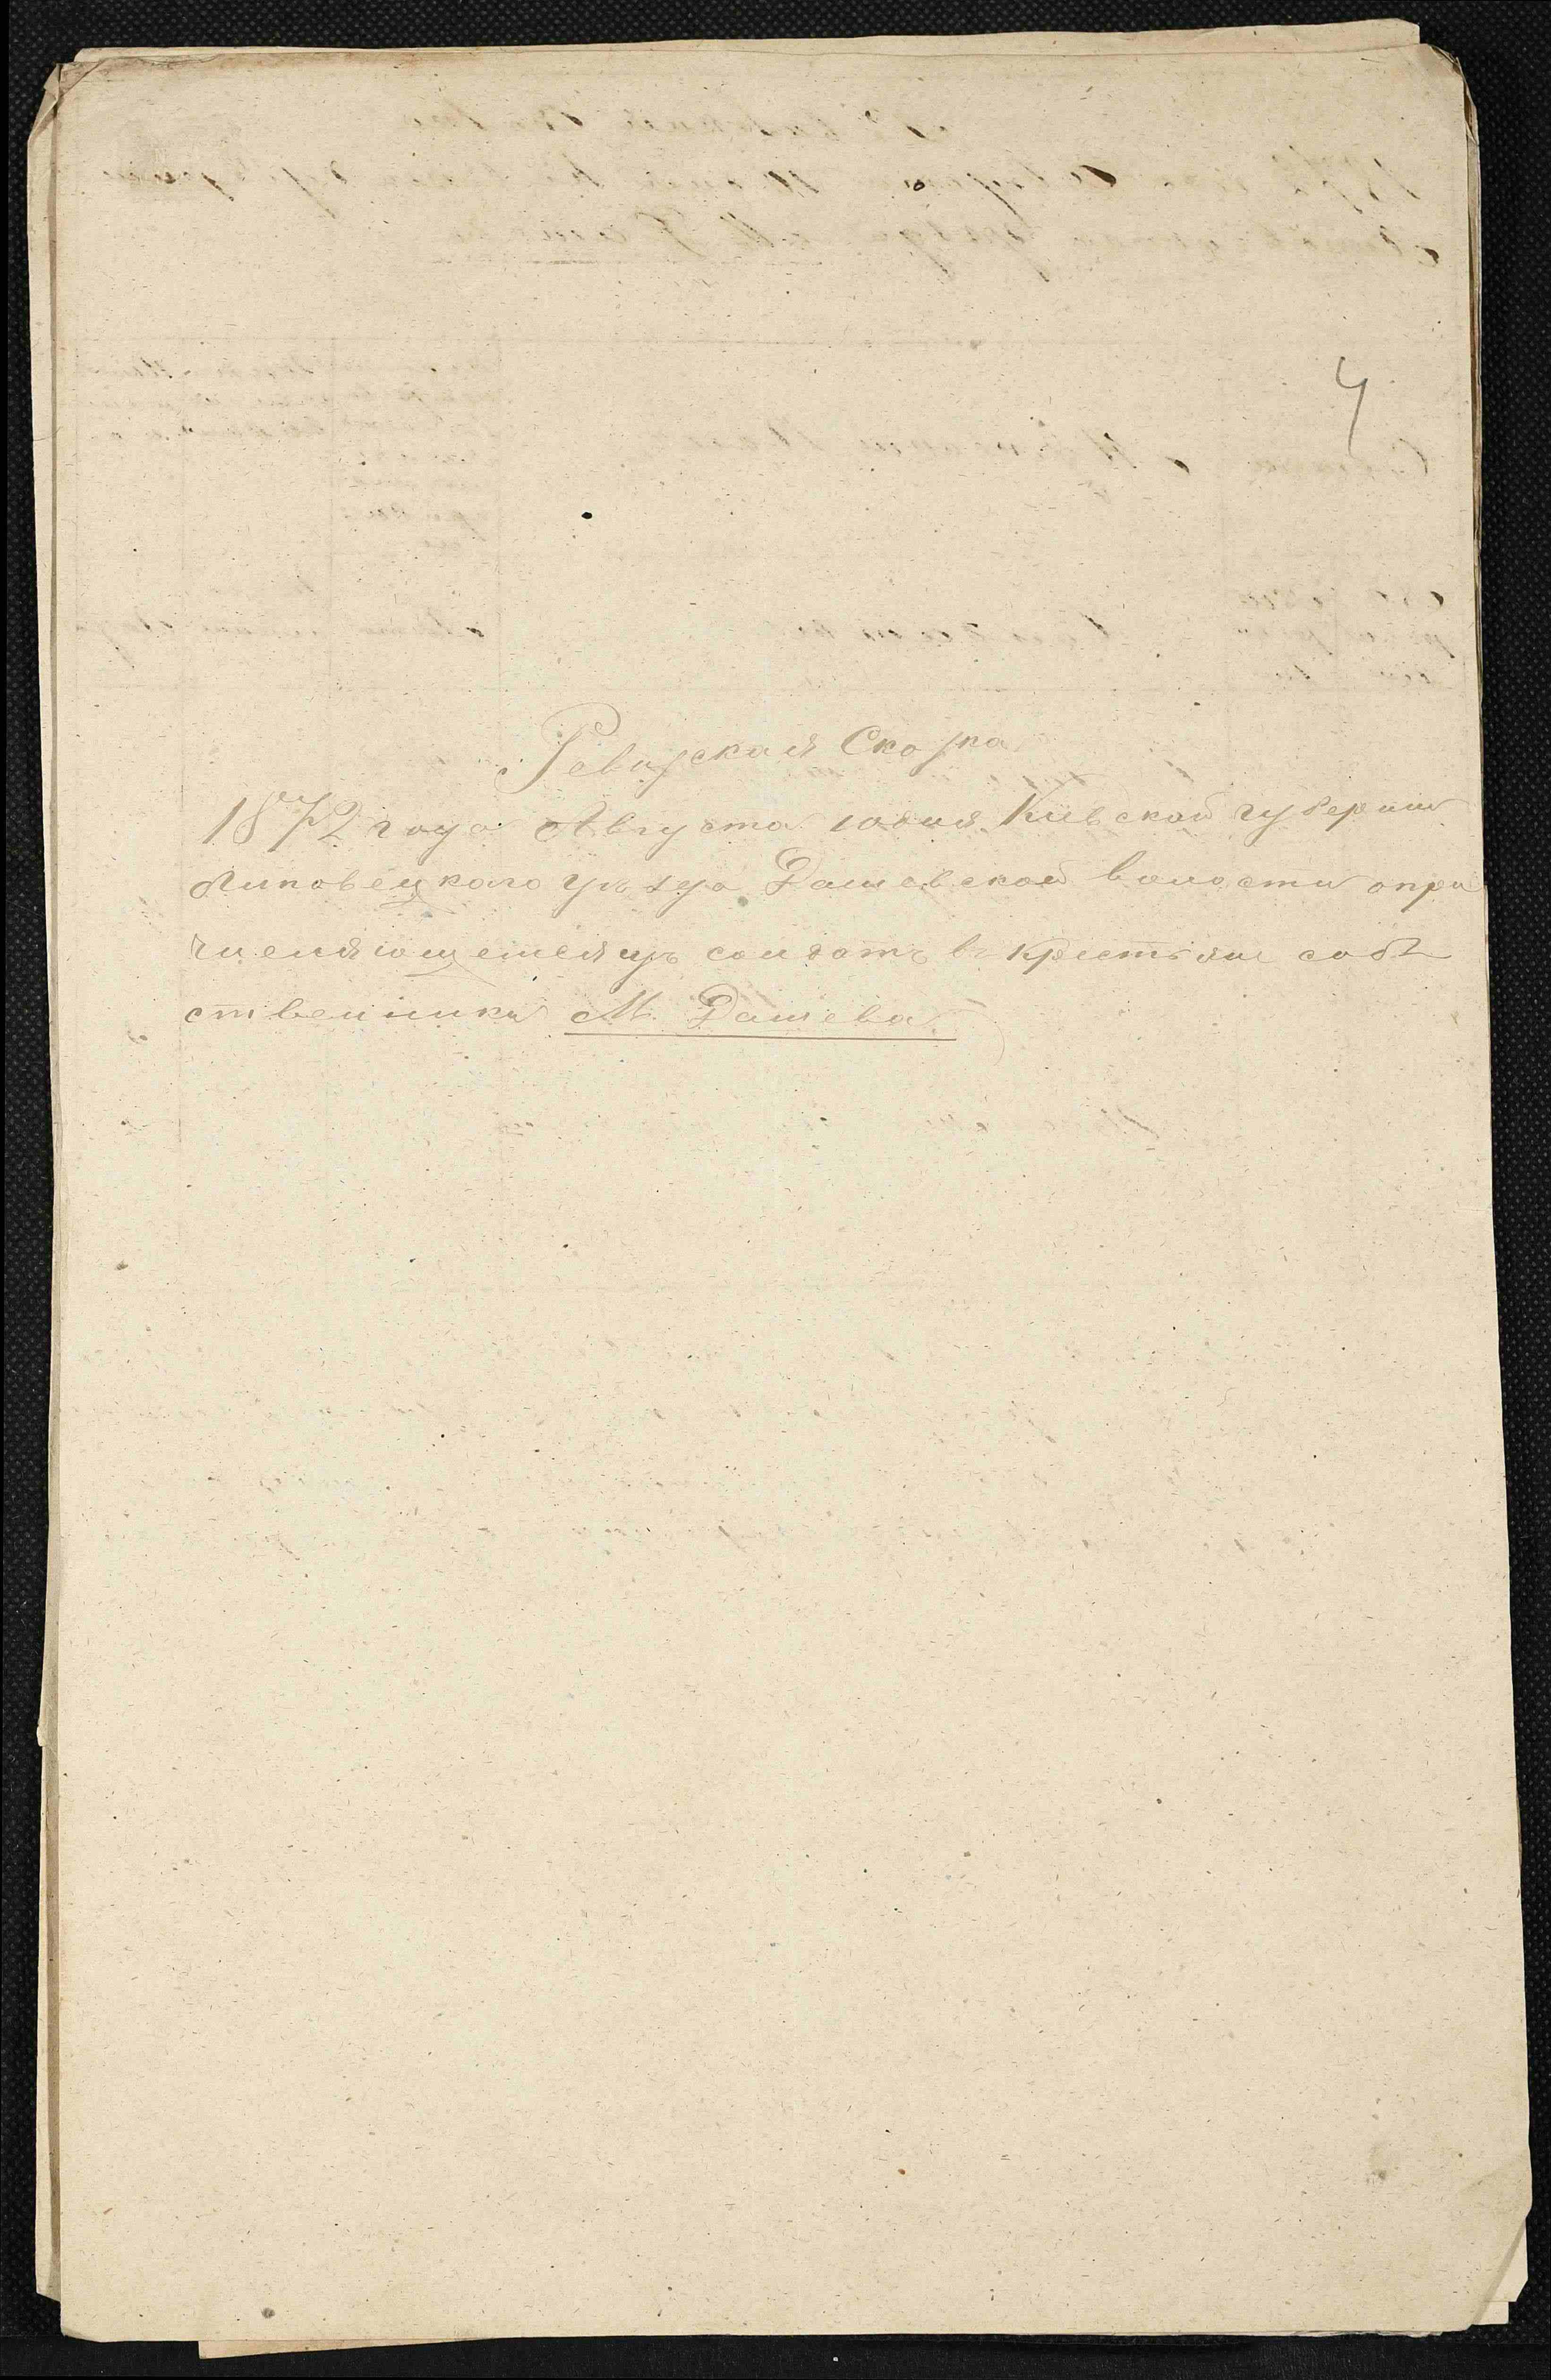 4
Ревизская Сказка
1872 года Августа 10 дня Киевской губернии
Липовецкого уѣзда Дашевской волости опри
числяющемся изъ солдатъ въ крестьяне соб
ственники М. Дашева